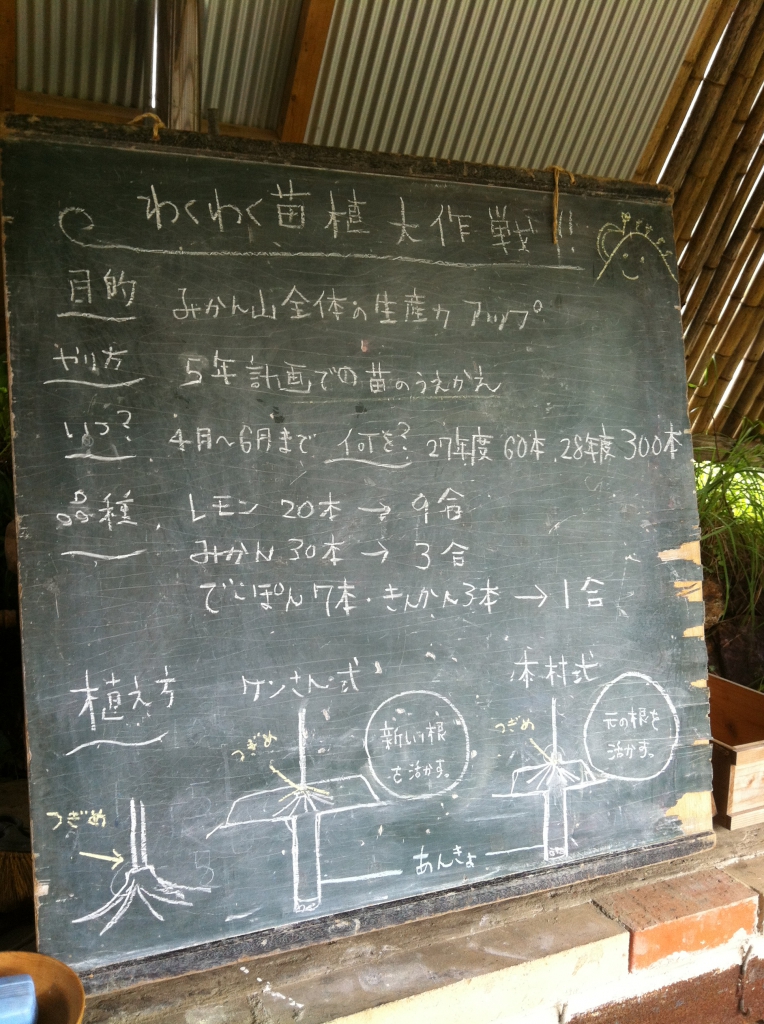 わくわく苗植大作戦!!
目的 みかん山全体の生産力アップ
やり方 5年計画での苗のうえかえ
いつ? 4月〜6月まで 何を? 27年度60本、28年度300本
品種. レモン 20本 → 9合
みかん 30本 → 3合
でこぽん7本・きんかん3本 → 1合
植え方 ケンさん式 木村式
つぎめ 新しい根を活かす。 つぎめ 元の根を活かす。
つぎめ
あんきょ